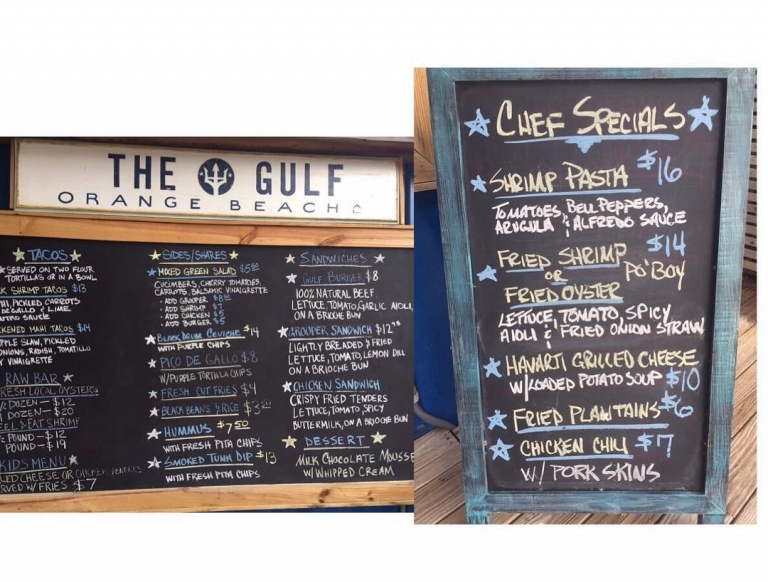 THE GULF
ORANGE BEACH
TACOS
SERVED ON TWO FLOUR
TORTILLAS OR IN A BOWL
SHRIMP TACOS $13
PICKLED CARROTS
DE GALLO & LIME
SAUCE
MAHI TACOS $14
APPLE SLAW, PICKLED
ONIONS, RADISH, TOMATILLO
VINAIGRETTE
RAW BAR
FRESH LOCAL OYSTERS
DOZEN - $12
DOZEN - $20
PEEL & EAT SHRIMP
POUND - $12
POUND - $19
KIDS MENU
CHEESE OR CHICKEN TENDERS
SERVED W/ FRIES $7
SIDES/SHARES
MIXED GREEN SALAD
CUCUMBERS, CHERRY TOMATOES,
CARROTS, BALSAMIC VINAIGRETTE
- ADD GROUPER
- ADD SHRIMP $7
- ADD CHICKEN $5
- ADD BURGER $5
BLACK DRUM CEVICHE $14
WITH PURPLE CHIPS
PICO DE GALLO $8
W/PURPLE TORTILLA CHIPS
FRESH CUT FRIES $4
BLACK BEANS & RICE
HUMMUS $7.50
WITH FRESH PITA CHIPS
SMOKED TUNA DIP $13
WITH FRESH PITA CHIPS
SANDWICHES
GULF BURGER $8
100% NATURAL BEEF
LETTUCE, TOMATO, GARLIC AIOLI,
ON A BRIOCHE BUN
GROUPER SANDWICH $12
LIGHTLY BREADED & FRIED
LETTUCE, TOMATO, LEMON DILL
ON A BRIOCHE BUN
CHICKEN SANDWICH
CRISPY FRIED TENDERS
LETTUCE, TOMATO, SPICY
BUTTERMILK, ON A BRIOCHE BUN
DESSERT
MILK CHOCOLATE MOUSSE
W/ WHIPPED CREAM
CHEF SPECIALS
SHRIMP PASTA $16
TOMATOES, BELL PEPPERS,
ARUGULA & ALFREDO SAUCE
FRIED SHRIMP $14
OR PO'BOY
FRIED OYSTER
LETTUCE, TOMATO, SPICY
AIOLI & FRIED ONION STRAW
HAVARTI GRILLED CHEESE
W/LOADED POTATO SOUP $10
FRIED PLANTAINS $6
CHICKEN CHILI $7
W/ PORK SKINS